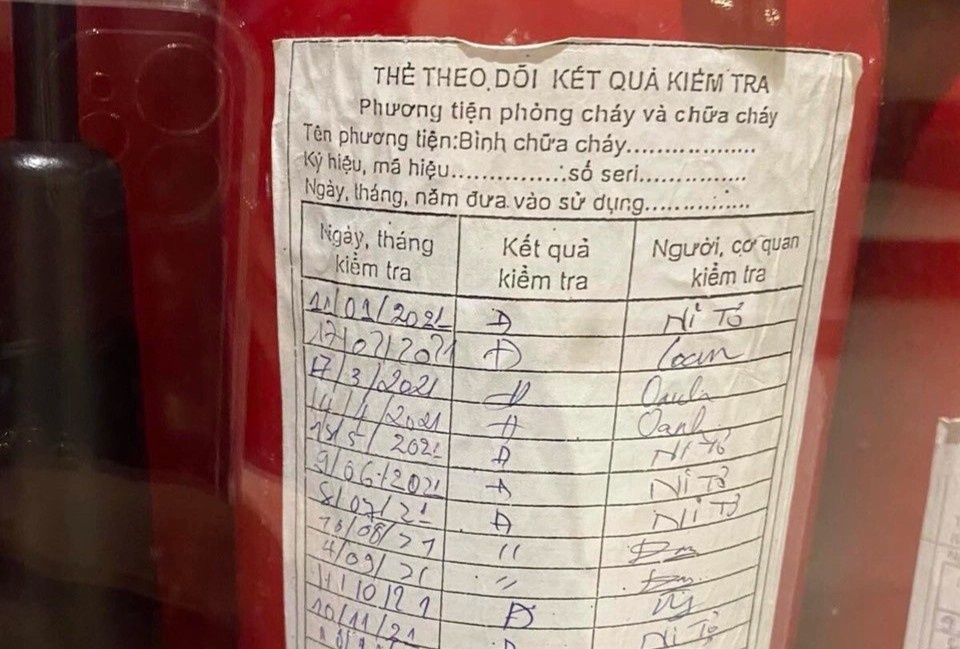 THẺ THEO DÕI KẾT QUẢ KIỂM TRA
Phương tiện phòng cháy và chữa cháy
Tên phương tiện:Bình chữa cháy..................
Ký hiệu, mã hiệu................số seri...............
Ngày, tháng, năm đưa vào sử dụng...............
Ngày, tháng kiểm tra Kết quả kiểm tra Người, cơ quan kiểm tra
11/01/2021 Đ Ni Tổ
17/02/2021 Đ Loan
17/3/2021 Đ Oanh
14/4/2021 Đ Oanh
15/5/2021 Đ Ni Tổ
9/06/2021 Đ Ni Tổ
8/07/21 Đ Ni Tổ
10/08/21 "
4/09/21 "
11/10/21 Đ
10/11/21 Đ Ni Tổ